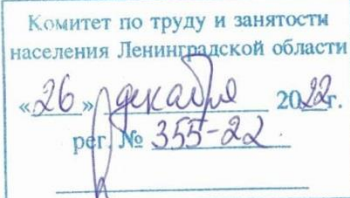 Комитет по труду и занятости
населения Ленинградской области
«26» декабря 2022г.
рег. № 355-22